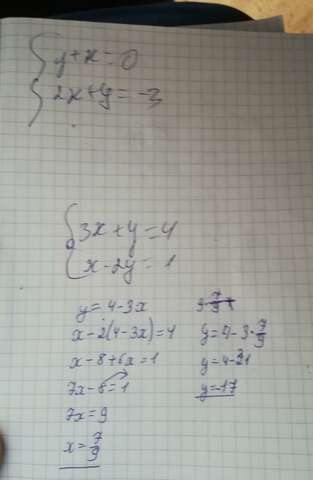 y+x=0
2x+y=-3
3x+y=4
x-2y=1
y=4-3x
x-2(4-3x)=1
x-8+6x=1
7x-8=1
7x=9
x=7/9
y=4-3·7/9
y=4-21
y=-17